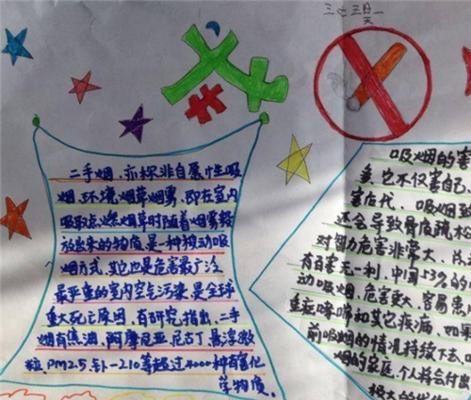 三七三班
二手烟,亦称非自愿性吸
烟、环境烟草烟雾,即在室内
吸取点燃烟草时随着烟雾释
放出来的物质,是一种被动吸
烟方式,其它也是危害最广泛
最严重的室内空气污染,是全球
重大死亡原因,有研究指出,二手
烟有焦油,阿摩尼亚,尼古丁,悬浮微
粒,PM2.5,钋-210等超过4000种有害化
学物质。
吸烟的害
它不仅害自己
害后代、吸烟致
还会导致骨质疏松
对智力危害非常大、
有百害无一利,中国53%的
动吸烟、危害更大,容易患
重症哮喘和其它疾病,如果
前吸烟的情况持续下去、
烟的家庭,个人将会付出
极大的